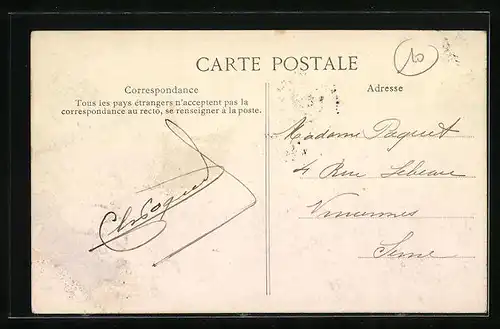 CARTE POSTALE
10
Correspondance
Tous les pays étrangers n'acceptent pas la
correspondance au recto, se renseigner à la poste.
Adresse
Madame Paquet
4 Rue Lebeau
Vincennes
Seine